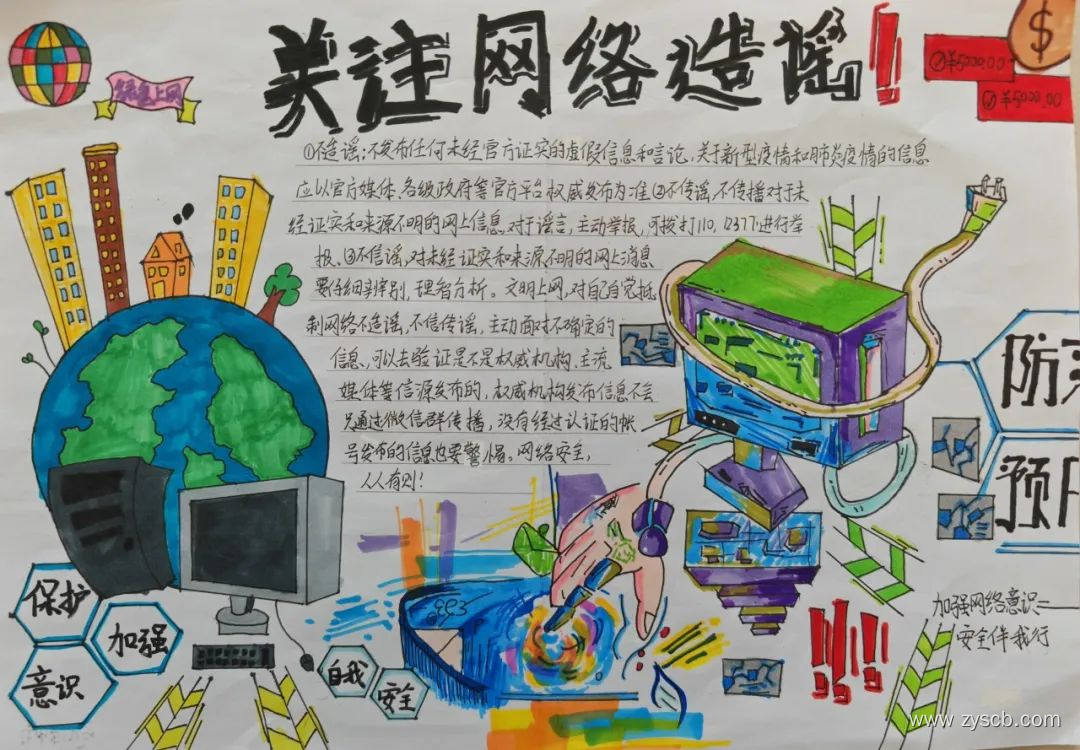 关注网络造谣!
绿色上网
$
¥5000.00
¥5000.00
①不造谣:不发布任何未经官方证实的虚假信息和言论,关于新型疫情和肺炎疫情的信息
应以官方媒体、各级政府等官方平台权威发布为准②不传谣,不传播对于未
经证实和来源不明的网上信息,对于谣言,主动举报,可拨打110,12377进行举
报、③不信谣,对未经证实和来源不明的网上消息
要仔细辨别,理智分析。文明上网,对自己自觉抵
制网络不造谣,不信传谣,主动面对不确定的
信息,可以去验证是不是权威机构、主流
媒体等信源发布的,权威机构发布信息不会
只通过微信群传播,没有经过认证的帐
号发布的信息也要警惕。网络安全,
人人有则!
防
预
保护
加强
意识
自我
安全
!!!
加强网络意识一
安全伴我行
www.zyscb.com